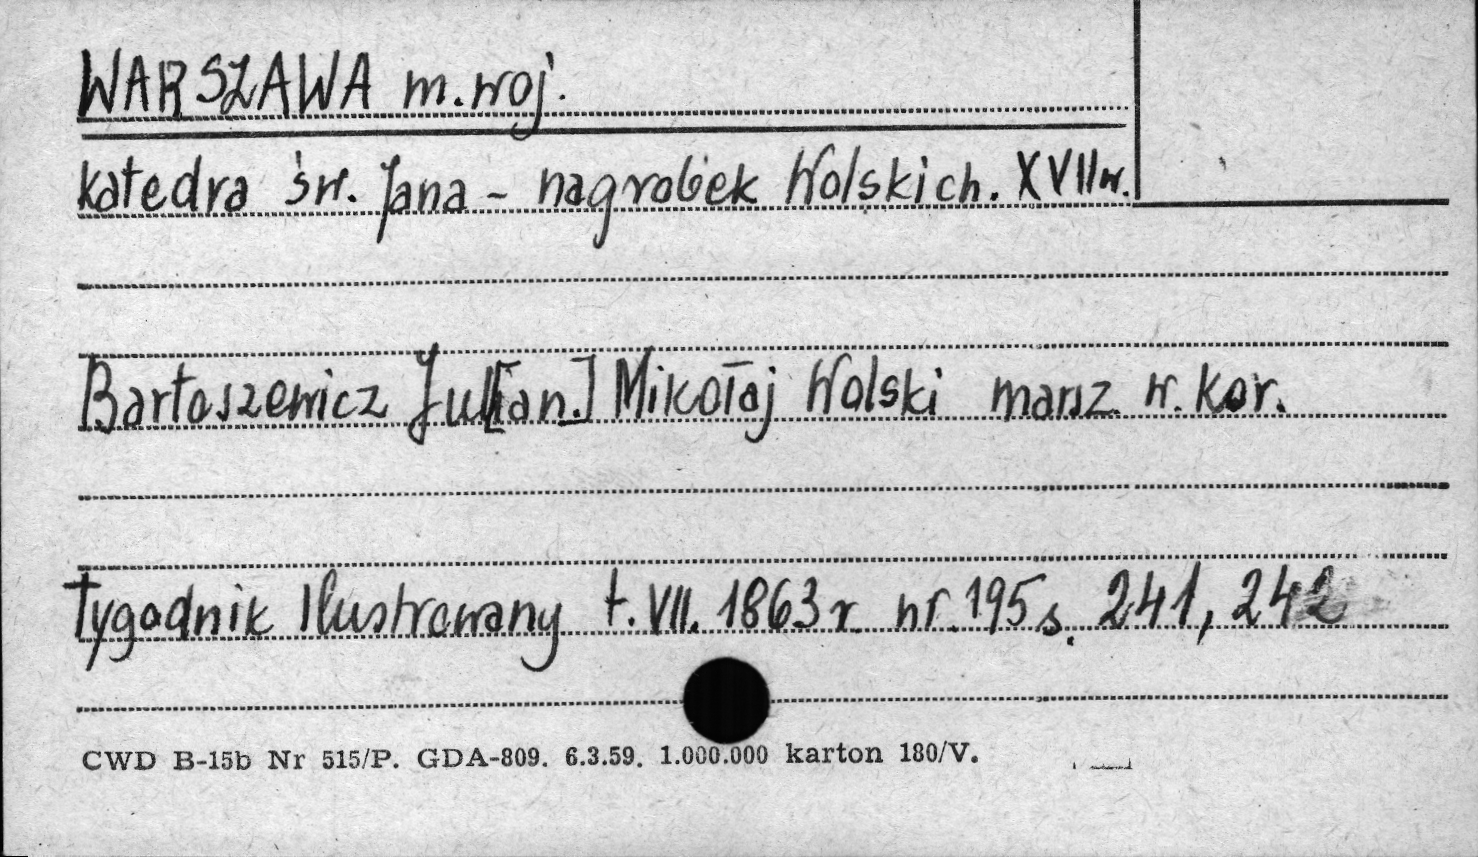 WARSZAWA m. woj.
katedra św. Jana - nagrobek Wolskich. XVII w.
Bartoszewicz Jul[ian.] Mikołaj Wolski marsz. w. kor.
Tygodnik Ilustrowany t. VII. 1863 r nr. 195 s. 241, 242
CWD B-15b Nr 515/P. GDA-809. 6.3.59. 1.000.000 karton 180/V.